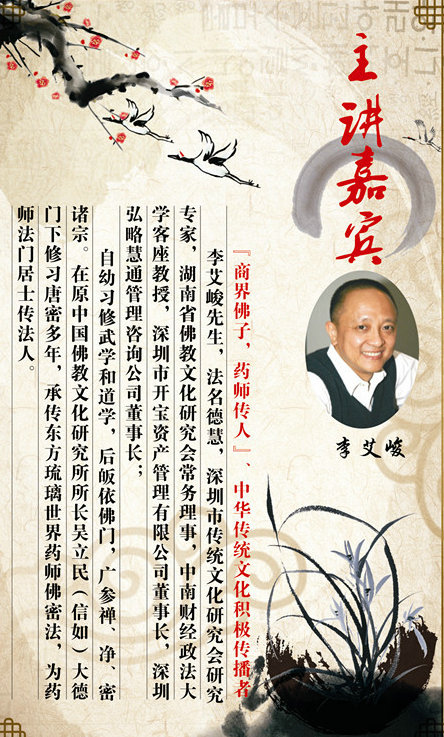 主讲嘉宾
李艾峻
『商界佛子，药师传人』、中华传统文化积极传播者
李艾峻先生，法名德慧，深圳市传统文化研究会研究
专家，湖南省佛教文化研究会常务理事，中南财经政法大
学客座教授，深圳市开宝资产管理有限公司董事长，深圳
弘略慧通管理咨询公司董事长；
自幼习修武学和道学，后皈依佛门，广参禅、净、密
诸宗。在原中国佛教文化研究所所长吴立民（信如）大德
门下修习唐密多年，承传东方琉璃世界药师佛密法，为药
师法门居士传法人。